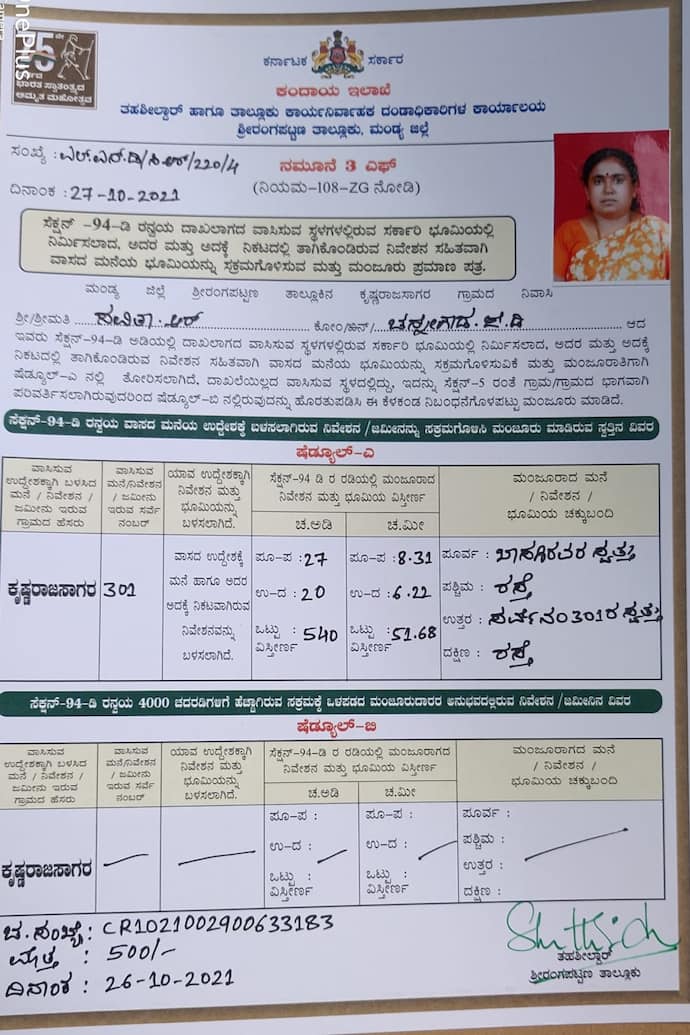 OnePlus
75 ನೇ
ಭಾರತ ಸ್ವಾತಂತ್ರ್ಯದ
ಅಮೃತ ಮಹೋತ್ಸವ
ಕರ್ನಾಟಕ ಸರ್ಕಾರ
ಕಂದಾಯ ಇಲಾಖೆ
ತಹಶೀಲ್ದಾರ್ ಹಾಗೂ ತಾಲ್ಲೂಕು ಕಾರ್ಯನಿರ್ವಾಹಕ ದಂಡಾಧಿಕಾರಿಗಳ ಕಾರ್ಯಾಲಯ
ಶ್ರೀರಂಗಪಟ್ಟಣ ತಾಲ್ಲೂಕು, ಮಂಡ್ಯ ಜಿಲ್ಲೆ
ಸಂಖ್ಯೆ : ಎಲ್.ಎನ್.ಡಿ/ಸಿಆರ್/220/4
ನಮೂನೆ 3 ಎಫ್
ದಿನಾಂಕ : 27-10-2021
(ನಿಯಮ-108-ZG ನೋಡಿ)
ಸೆಕ್ಷನ್ -94-ಡಿ ರನ್ವಯ ದಾಖಲಾಗದ ವಾಸಿಸುವ ಸ್ಥಳಗಳಲ್ಲಿರುವ ಸರ್ಕಾರಿ ಭೂಮಿಯಲ್ಲಿ
ನಿರ್ಮಿಸಲಾದ, ಅದರ ಮತ್ತು ಅದಕ್ಕೆ ನಿಕಟದಲ್ಲಿ ತಾಗಿಕೊಂಡಿರುವ ನಿವೇಶನ ಸಹಿತವಾಗಿ
ವಾಸದ ಮನೆಯ ಭೂಮಿಯನ್ನು ಸಕ್ರಮಗೊಳಿಸುವ ಮತ್ತು ಮಂಜೂರು ಪ್ರಮಾಣ ಪತ್ರ.
ಮಂಡ್ಯ ಜಿಲ್ಲೆ ಶ್ರೀರಂಗಪಟ್ಟಣ ತಾಲ್ಲೂಕಿನ ಕೃಷ್ಣರಾಜಸಾಗರ ಗ್ರಾಮದ ನಿವಾಸಿ
ಶ್ರೀ/ಶ್ರೀಮತಿ ಸವಿತಾ. ಆರ್ ಕೋಂ/ಬಿನ್/ ಆದ
ಇವರು ಸೆಕ್ಷನ್-94-ಡಿ ಅಡಿಯಲ್ಲಿ ದಾಖಲಾಗದ ವಾಸಿಸುವ ಸ್ಥಳಗಳಲ್ಲಿರುವ ಸರ್ಕಾರಿ ಭೂಮಿಯಲ್ಲಿ ನಿರ್ಮಿಸಲಾದ, ಅದರ ಮತ್ತು ಅದಕ್ಕೆ
ನಿಕಟದಲ್ಲಿ ತಾಗಿಕೊಂಡಿರುವ ನಿವೇಶನ ಸಹಿತವಾಗಿ ವಾಸದ ಮನೆಯ ಭೂಮಿಯನ್ನು ಸಕ್ರಮಗೊಳಿಸುವಿಕೆ ಮತ್ತು ಮಂಜೂರಾತಿಗಾಗಿ
ಷೆಡ್ಯೂಲ್-ಎ ನಲ್ಲಿ ತೋರಿಸಲಾಗಿದೆ, ದಾಖಲೆಯಿಲ್ಲದ ವಾಸಿಸುವ ಸ್ಥಳದಲ್ಲಿದ್ದು, ಇದನ್ನು ಸೆಕ್ಷನ್-5 ರಂತೆ ಗ್ರಾಮ/ಗ್ರಾಮದ ಭಾಗವಾಗಿ
ಪರಿವರ್ತಿಸಲಾಗಿರುವುದರಿಂದ ಷೆಡ್ಯೂಲ್-ಬಿ ನಲ್ಲಿರುವುದನ್ನು ಹೊರತುಪಡಿಸಿ ಈ ಕೆಳಕಂಡ ನಿಬಂಧನೆಗೊಳಪಟ್ಟು ಮಂಜೂರು ಮಾಡಿದೆ.
ಸೆಕ್ಷನ್-94-ಡಿ ರನ್ವಯ ವಾಸದ ಮನೆಯ ಉದ್ದೇಶಕ್ಕೆ ಬಳಸಲಾಗಿರುವ ನಿವೇಶನ /ಜಮೀನನ್ನು ಸಕ್ರಮಗೊಳಿಸಿ ಮಂಜೂರು ಮಾಡಿರುವ ಸ್ವತ್ತಿನ ವಿವರ
ಷೆಡ್ಯೂಲ್-ಎ
ವಾಸಿಸುವ ಉದ್ದೇಶಕ್ಕಾಗಿ ಬಳಸಿದ ಮನೆ / ನಿವೇಶನ / ಜಮೀನು ಇರುವ ಗ್ರಾಮದ ಹೆಸರು
ವಾಸಿಸುವ ಮನೆ/ನಿವೇಶನ / ಜಮೀನು ಇರುವ ಸರ್ವೆ ನಂಬರ್
ಯಾವ ಉದ್ದೇಶಕ್ಕಾಗಿ ನಿವೇಶನ ಮತ್ತು ಭೂಮಿಯನ್ನು ಬಳಸಲಾಗಿದೆ.
ಸೆಕ್ಷನ್-94-ಡಿ ರ ರಡಿಯಲ್ಲಿ ಮಂಜೂರಾದ ನಿವೇಶನ ಮತ್ತು ಭೂಮಿಯ ವಿಸ್ತೀರ್ಣ
ಚ.ಅಡಿ ಚ.ಮೀ
ಮಂಜೂರಾದ ಮನೆ / ನಿವೇಶನ / ಭೂಮಿಯ ಚಕ್ಕುಬಂದಿ
ಕೃಷ್ಣರಾಜಸಾಗರ 301
ವಾಸದ ಉದ್ದೇಶಕ್ಕೆ ಮನೆ ಹಾಗೂ ಅದರ ಅದಕ್ಕೆ ನಿಕಟವಾಗಿರುವ ನಿವೇಶನವನ್ನು ಬಳಸಲಾಗಿದೆ.
ಪೂ-ಪ : 27 ಪೂ-ಪ : 8.31 ಪೂರ್ವ : ಸ್ವತ್ತು
ಉ-ದ : 20 ಉ-ದ : 6.22 ಪಶ್ಚಿಮ : ರಸ್ತೆ
ಒಟ್ಟು ವಿಸ್ತೀರ್ಣ : 540 ಒಟ್ಟು ವಿಸ್ತೀರ್ಣ : 51.68 ಉತ್ತರ : ಸರ್ವೆ ನಂ 301 ರ ಸ್ವತ್ತು
ದಕ್ಷಿಣ : ರಸ್ತೆ
ಸೆಕ್ಷನ್-94-ಡಿ ರನ್ವಯ 4000 ಚದರಡಿಗಳಿಗೆ ಹೆಚ್ಚಾಗಿರುವ ಸಕ್ರಮಕ್ಕೆ ಒಳಪಡದ ಮಂಜೂರುದಾರರ ಅನುಭವದಲ್ಲಿರುವ ನಿವೇಶನ /ಜಮೀನಿನ ವಿವರ
ಷೆಡ್ಯೂಲ್-ಬಿ
ವಾಸಿಸುವ ಉದ್ದೇಶಕ್ಕಾಗಿ ಬಳಸಿದ ಮನೆ / ನಿವೇಶನ / ಜಮೀನು ಇರುವ ಗ್ರಾಮದ ಹೆಸರು
ವಾಸಿಸುವ ಮನೆ/ನಿವೇಶನ / ಜಮೀನು ಇರುವ ಸರ್ವೆ ನಂಬರ್
ಯಾವ ಉದ್ದೇಶಕ್ಕಾಗಿ ನಿವೇಶನ ಮತ್ತು ಭೂಮಿಯನ್ನು ಬಳಸಲಾಗಿದೆ.
ಸೆಕ್ಷನ್-94-ಡಿ ರ ರಡಿಯಲ್ಲಿ ಮಂಜೂರಾಗದ ನಿವೇಶನ ಮತ್ತು ಭೂಮಿಯ ವಿಸ್ತೀರ್ಣ
ಚ.ಅಡಿ ಚ.ಮೀ
ಮಂಜೂರಾಗದ ಮನೆ / ನಿವೇಶನ / ಭೂಮಿಯ ಚಕ್ಕುಬಂದಿ
ಕೃಷ್ಣರಾಜಸಾಗರ
ಪೂ-ಪ : ಪೂ-ಪ : ಪೂರ್ವ :
ಉ-ದ : ಉ-ದ : ಪಶ್ಚಿಮ :
ಒಟ್ಟು ವಿಸ್ತೀರ್ಣ : ಒಟ್ಟು ವಿಸ್ತೀರ್ಣ : ಉತ್ತರ :
ದಕ್ಷಿಣ :
ಚ.ಸಂಖ್ಯೆ : CR1021002900633183
ಮೊತ್ತ : 500/-
ದಿನಾಂಕ : 26-10-2021
ತಹಶೀಲ್ದಾರ್
ಶ್ರೀರಂಗಪಟ್ಟಣ ತಾಲ್ಲೂಕು